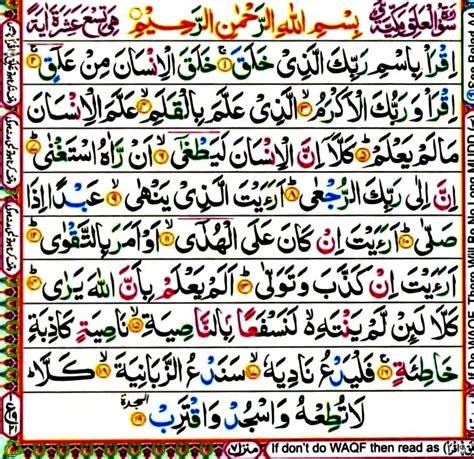 سُوْرَةُ الْعَلَقِ مَكِّيَّةٌ بِسْمِ اللّٰهِ الرَّحْمٰنِ الرَّحِيْمِ هِيَ تِسْعَ عَشَرَةَ اٰيَةً
اِقْرَاْ بِاسْمِ رَبِّكَ الَّذِيْ خَلَقَ ۝١ خَلَقَ الْاِنْسَانَ مِنْ عَلَقٍ ۝٢
اِقْرَاْ وَرَبُّكَ الْاَكْرَمُ ۝٣ الَّذِيْ عَلَّمَ بِالْقَلَمِ ۝٤ عَلَّمَ الْاِنْسَانَ
مَا لَمْ يَعْلَمْ ۝٥ كَلَّاۤ اِنَّ الْاِنْسَانَ لَيَطْغٰۤى ۝٦ اَنْ رَّاٰهُ اسْتَغْنٰى ۝٧
اِنَّ اِلٰى رَبِّكَ الرُّجْعٰى ۝٨ اَرَءَيْتَ الَّذِيْ يَنْهٰى ۝٩ عَبْدًا اِذَا
صَلّٰى ۝١٠ اَرَءَيْتَ اِنْ كَانَ عَلَى الْهُدٰۤى ۝١١ اَوْ اَمَرَ بِالتَّقْوٰى ۝١٢
اَرَءَيْتَ اِنْ كَذَّبَ وَتَوَلّٰى ۝١٣ اَلَمْ يَعْلَمْ بِاَنَّ اللّٰهَ يَرٰى ۝١٤
كَلَّا لَىِٕنْ لَّمْ يَنْتَهِ ەۙ لَنَسْفَعًۢا بِالنَّاصِيَةِ ۝١٥ نَاصِيَةٍ كَاذِبَةٍ
خَاطِئَةٍ ۝١٦ فَلْيَدْعُ نَادِيَهٗ ۝١٧ سَنَدْعُ الزَّبَانِيَةَ ۝١٨ كَلَّا
لَا تُطِعْهُ وَاسْجُدْ وَاقْتَرِبْ ۝١٩ السجدة
منزل ٧ If don't do WAQF then read as